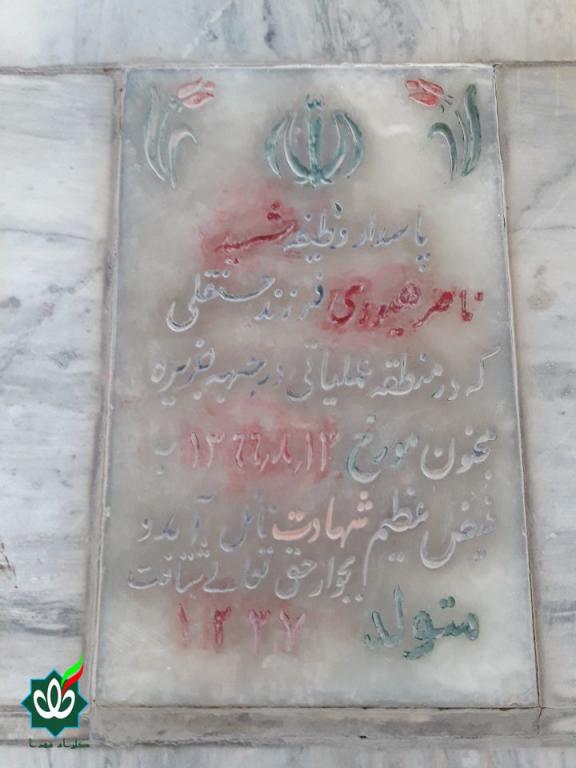 پاسدار وظیفه شهید
ناصر حیدری فرزند حسنقلی
که در منطقه عملیاتی در جبهه جزیره
مجنون مورخ ۱۳۶۶٫۸٫۱۳ به
فیض عظیم شهادت نائل آمد و
بجوار حق تعالی شتافت
متولد ۱۳۴۷